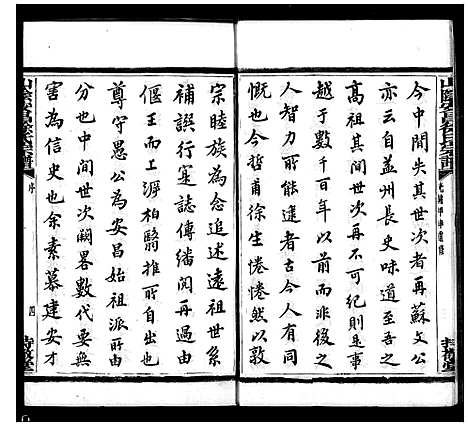 今中間失其世次者再蘇文公
亦云自益州長史味道至吾之
高祖其間世次再不可紀則事
越于數千百年以前而非後之
人智力所能逮者古今人有同
慨也今哲甫徐生惓惓然以敦
宗睦族為念追述遠祖世系
補誤行寔誌傳繙閱再過由
偃王而上溯柏翳推所自出
尊守愚公為安昌始祖派所由
分也中間世次闕畧數代要無
害為信史也余素慕建安才
山陰安昌徐氏宗譜
序
四